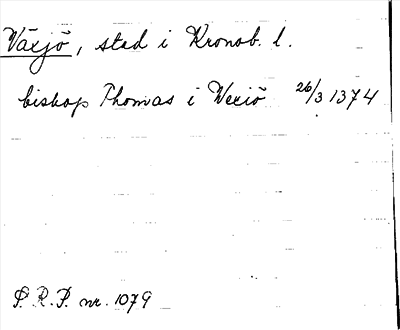 Växjö, stad i Kronob. l.
biskop Thomas i Wexiö 26/3 1374
P. R. P. nr. 1079